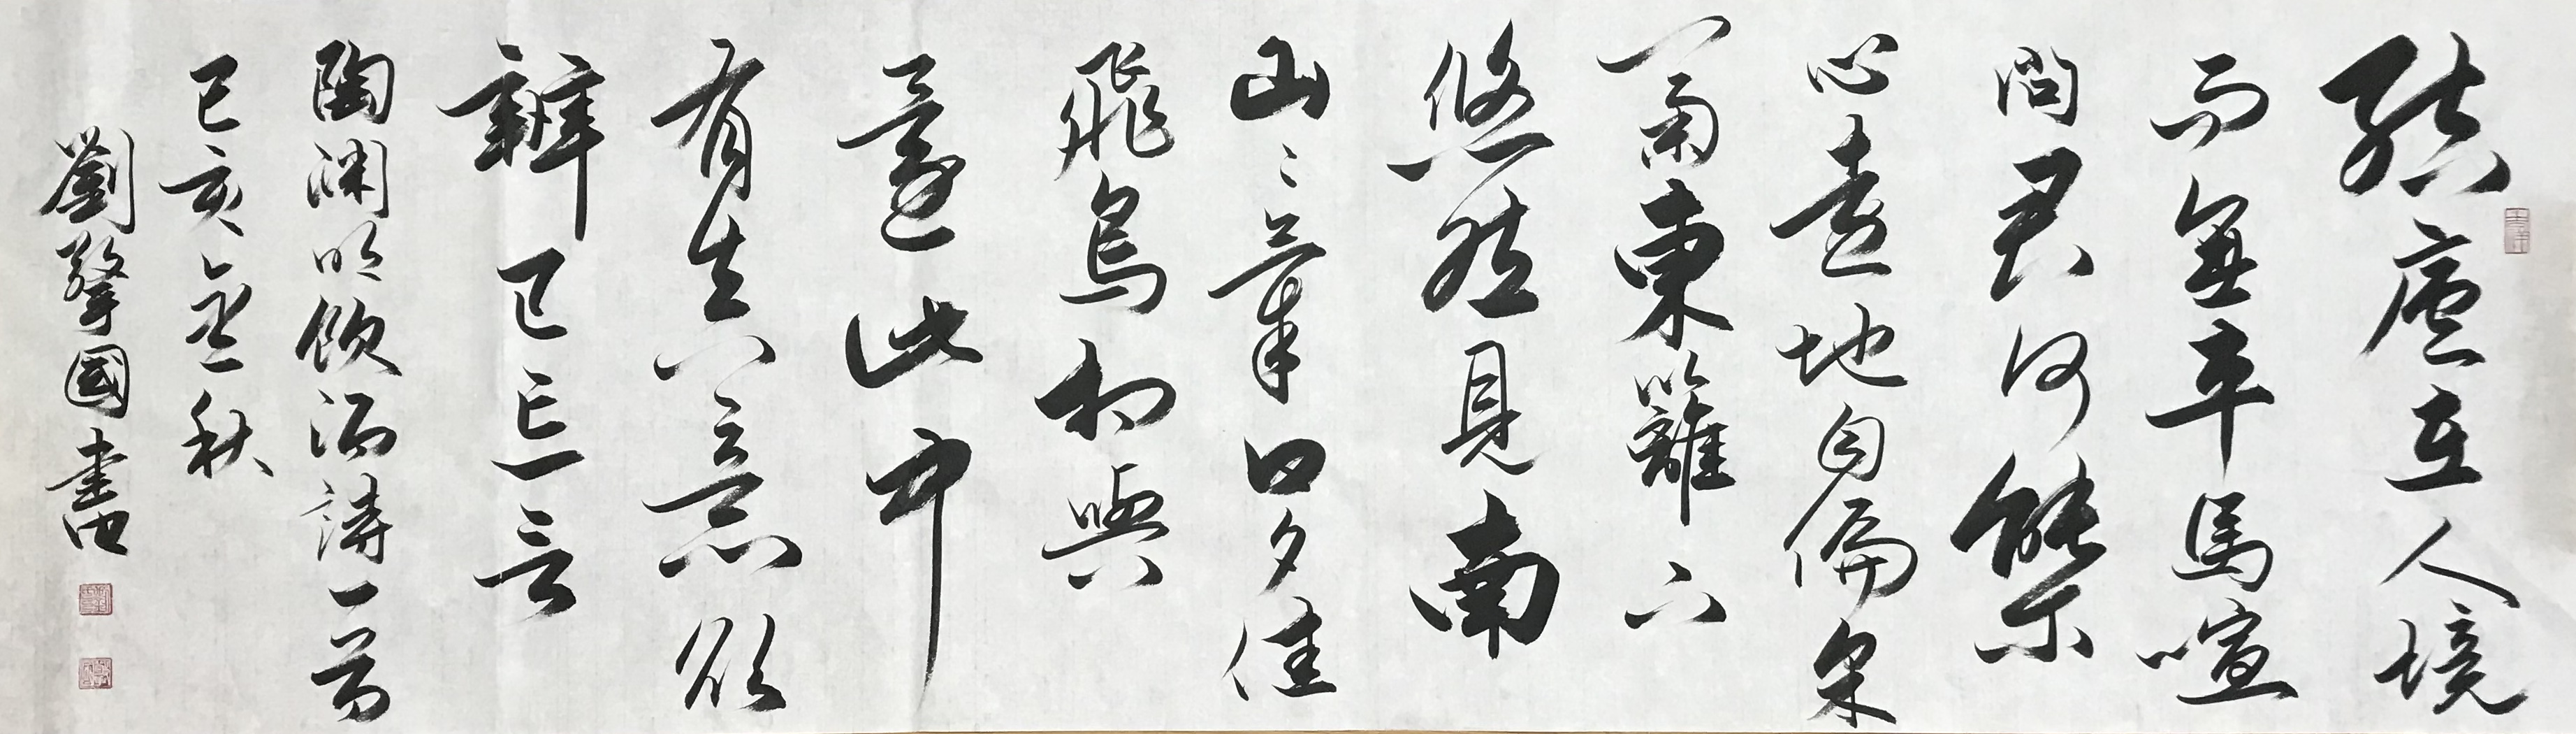 結廬在人境
而無車馬喧
問君何能尔
心遠地自偏采
菊東籬下
悠然見南
山〻氣日夕佳
飛鳥相與
還此中
有真意欲
辨已忘言
陶淵明飲酒詩一首
己亥金秋
劉擎國書